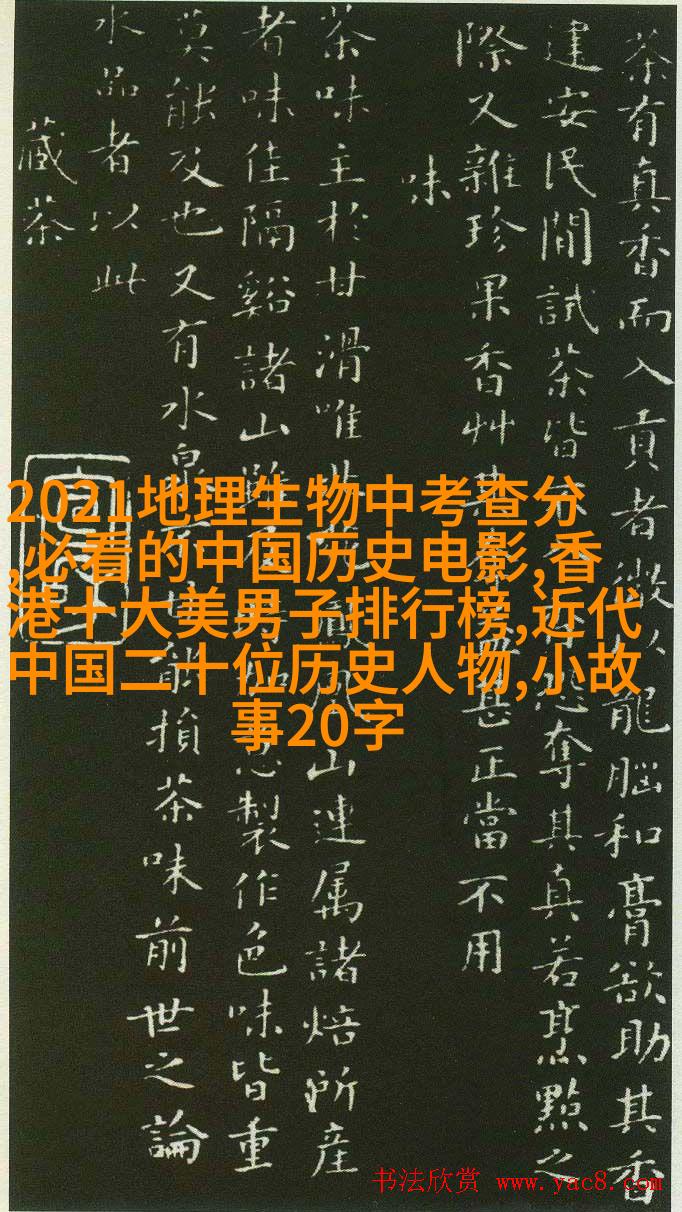 茶有真香而入貢者微以龍腦和膏欲助其香
建安民間試茶皆不入香恐奪其真若烹點之
際又雜珍果香艸其奪益甚正當不用
味
茶味主於甘滑唯北苑鳳凰山連属諸焙所産
者味佳隔谿諸山雖及時加意製作色味皆重
莫能及也又有水泉不甘能損茶味前世之論
水品者以此
藏茶
2021地理生物中考查分
,必看的中国历史电影,香
港十大美男子排行榜,近代
中国二十位历史人物,小故
事20字
书法欣赏 www.yac8.com